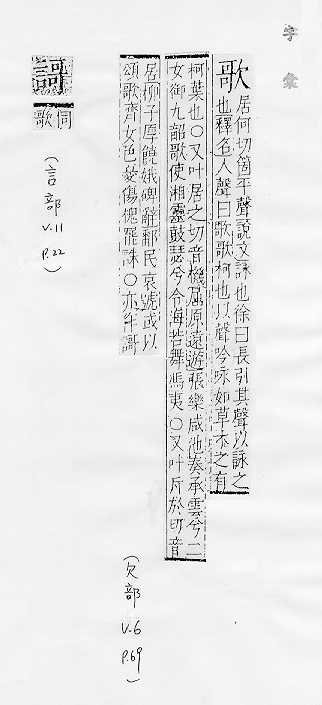 字彙
歌 居何切箇平聲說文詠也徐曰長引其聲以詠之
也釋名人聲曰歌歌柯也以聲吟咏如草木之有
柯葉也○又叶居之切音機屈原遠遊張樂咸池奏承雲兮二
女御九韶歌使湘靈鼓瑟兮令海若舞馮夷○又叶斤於切音
居柳子厚饒娥碑辭鄱民哀號或以
頌歌齊女色憂傷槐罷誅○亦作謌
(欠部 V.6 P.69)
謌 同歌
(言部 V.11 P.22)